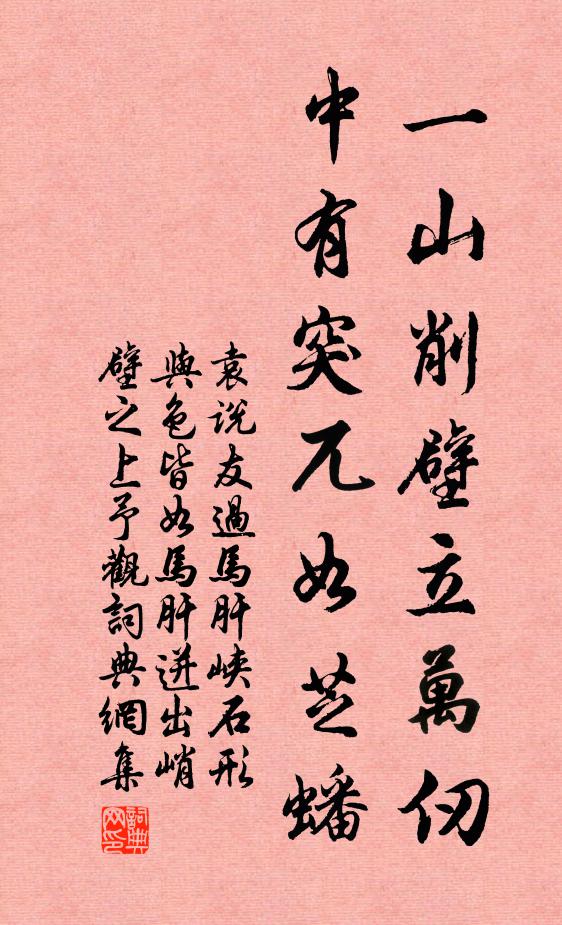 一山削壁立萬仞
中有突兀如芝蟠
袁说友過馬肝峽石形
與色皆如馬肝迸出峭
壁之上予觀詞典網集
詞典网印